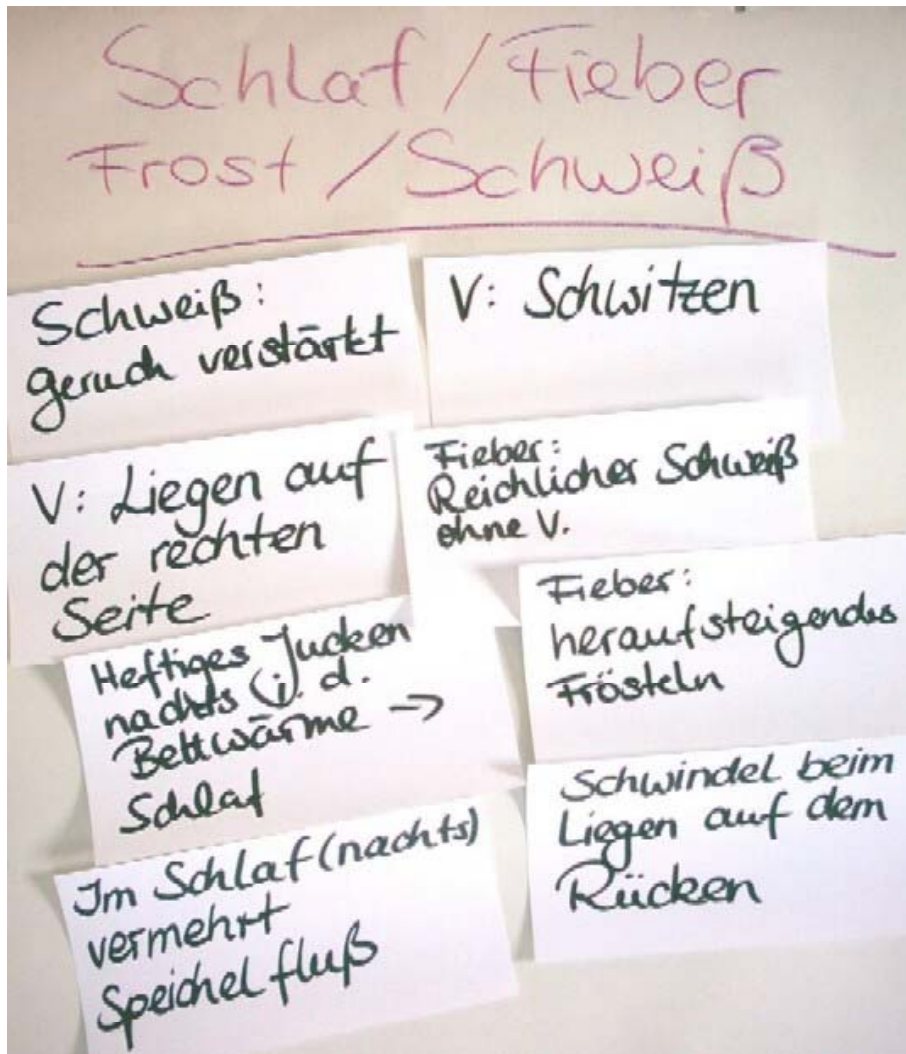 Schlaf / Fieber
Frost / Schweiß
Schweiß:
geruch verstärkt
V: Schwitzen
V: Liegen auf
der rechten
Seite
Fieber:
Reichlicher Schweiß
ohne V.
Heftiges Jucken
nachts (i. d.
Bettwärme →
Schlaf
Fieber:
heraufsteigendes
Frösteln
Im Schlaf (nachts)
vermehrt
Speichelfluß
Schwindel beim
Liegen auf dem
Rücken